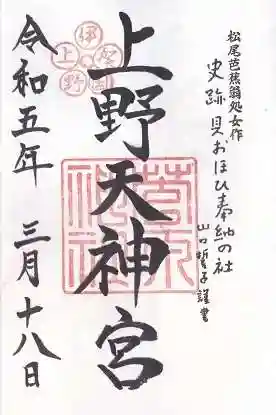 松尾芭蕉翁処女作
史跡 貝おほひ奉納の社
山口哲子謹書
上野天神宮
令和五年 三月十八日